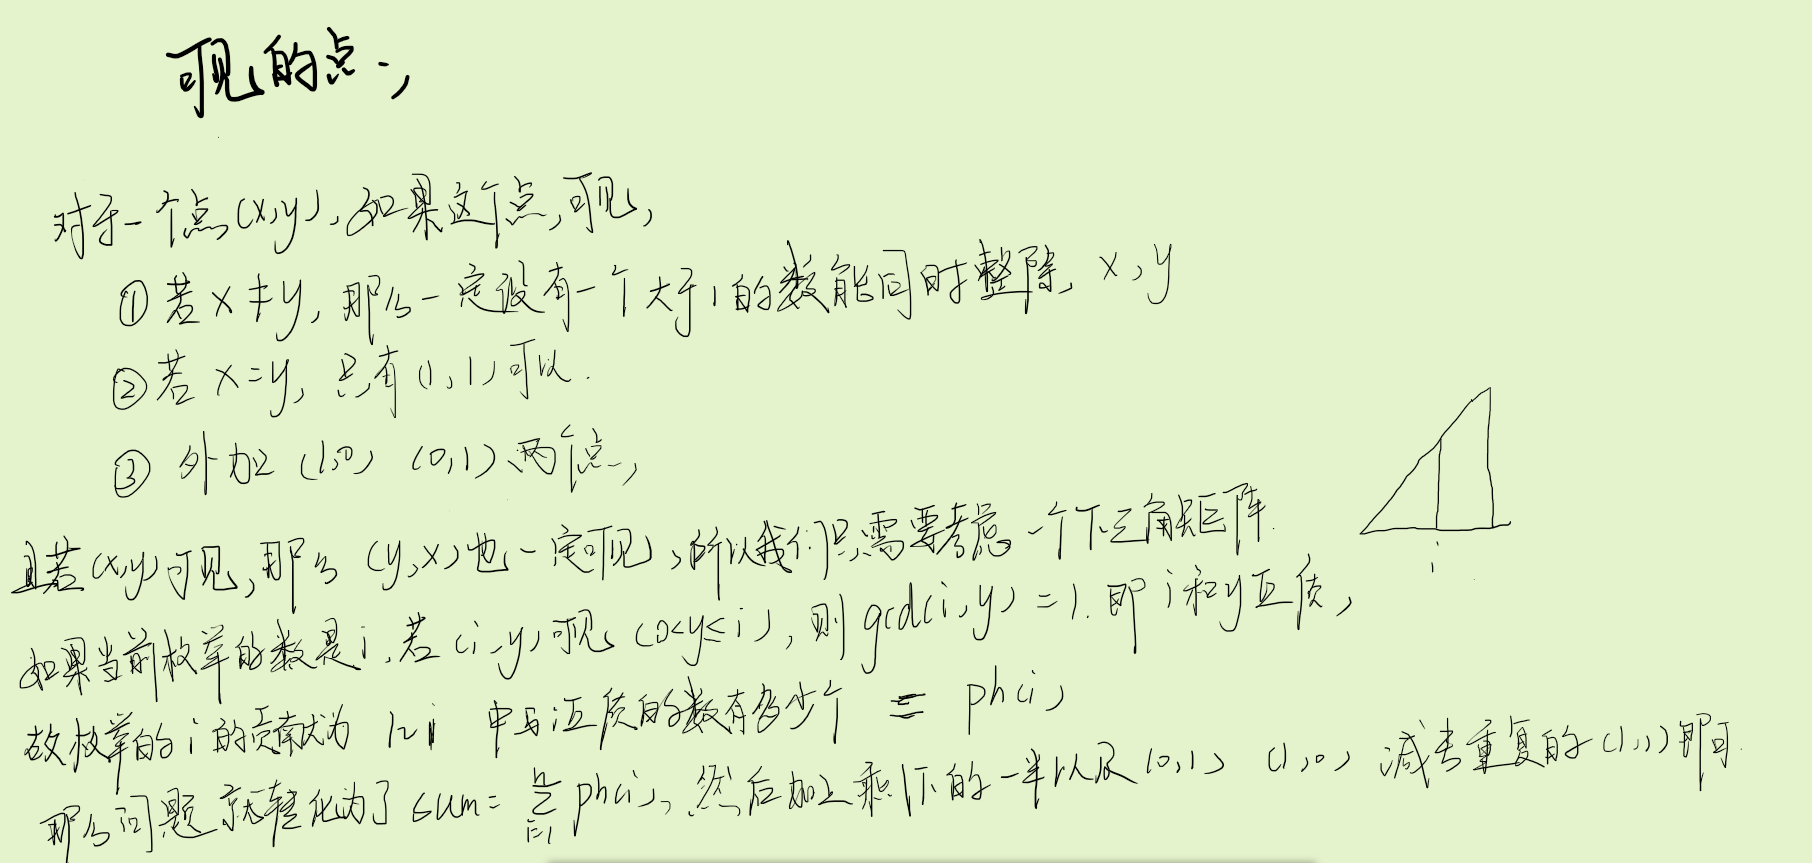 可见的点,
对于一个点(x,y),如果这个点可见,
① 若x≠y,那么一定没有一个大于1的数能同时整除x,y
② 若x=y,只有(1,1)可以.
③ 外加(1,0) (0,1)两个点,
且若(x,y)可见,那么(y,x)也一定可见,所以我们只需要考虑一个下三角矩阵.
如果当前枚举的数是i,若(i,y)可见(0<y≤i),则gcd(i,y)=1.即i和y互质,
i
故枚举的i的贡献为 1~i 中与i互质的数有多少个 = ph(i)
那么问题就转化为了sum=∑ⁿᵢ₌₁ph(i),然后加上剩下的一半以及(0,1) (1,0) 减去重复的(1,1)即可.